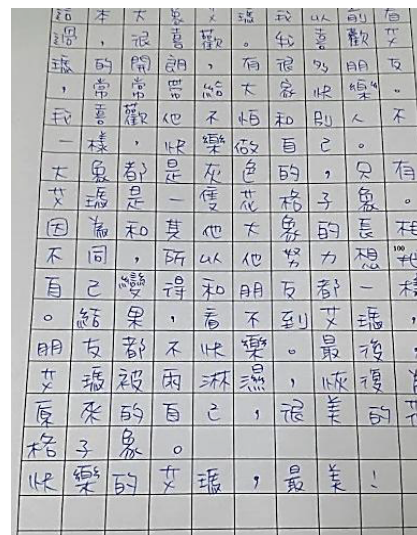 這本大象艾瑪我以前看
過，很喜歡。我喜歡艾
瑪的開朗，有很多朋友
，常常帶給大家快樂。
我喜歡他不怕和別人不
一樣，快樂做自己。
大象都是灰色的，只有
艾瑪是一隻花格子象。
因為和其他大象的長相
不同，所以他努力想把
100
自己變得和朋友都一樣
。結果，看不到艾瑪，
朋友都不快樂。最後，
艾瑪被雨淋濕，恢復
原來的自己，很美的花
格子象。
快樂的艾瑪，最美！